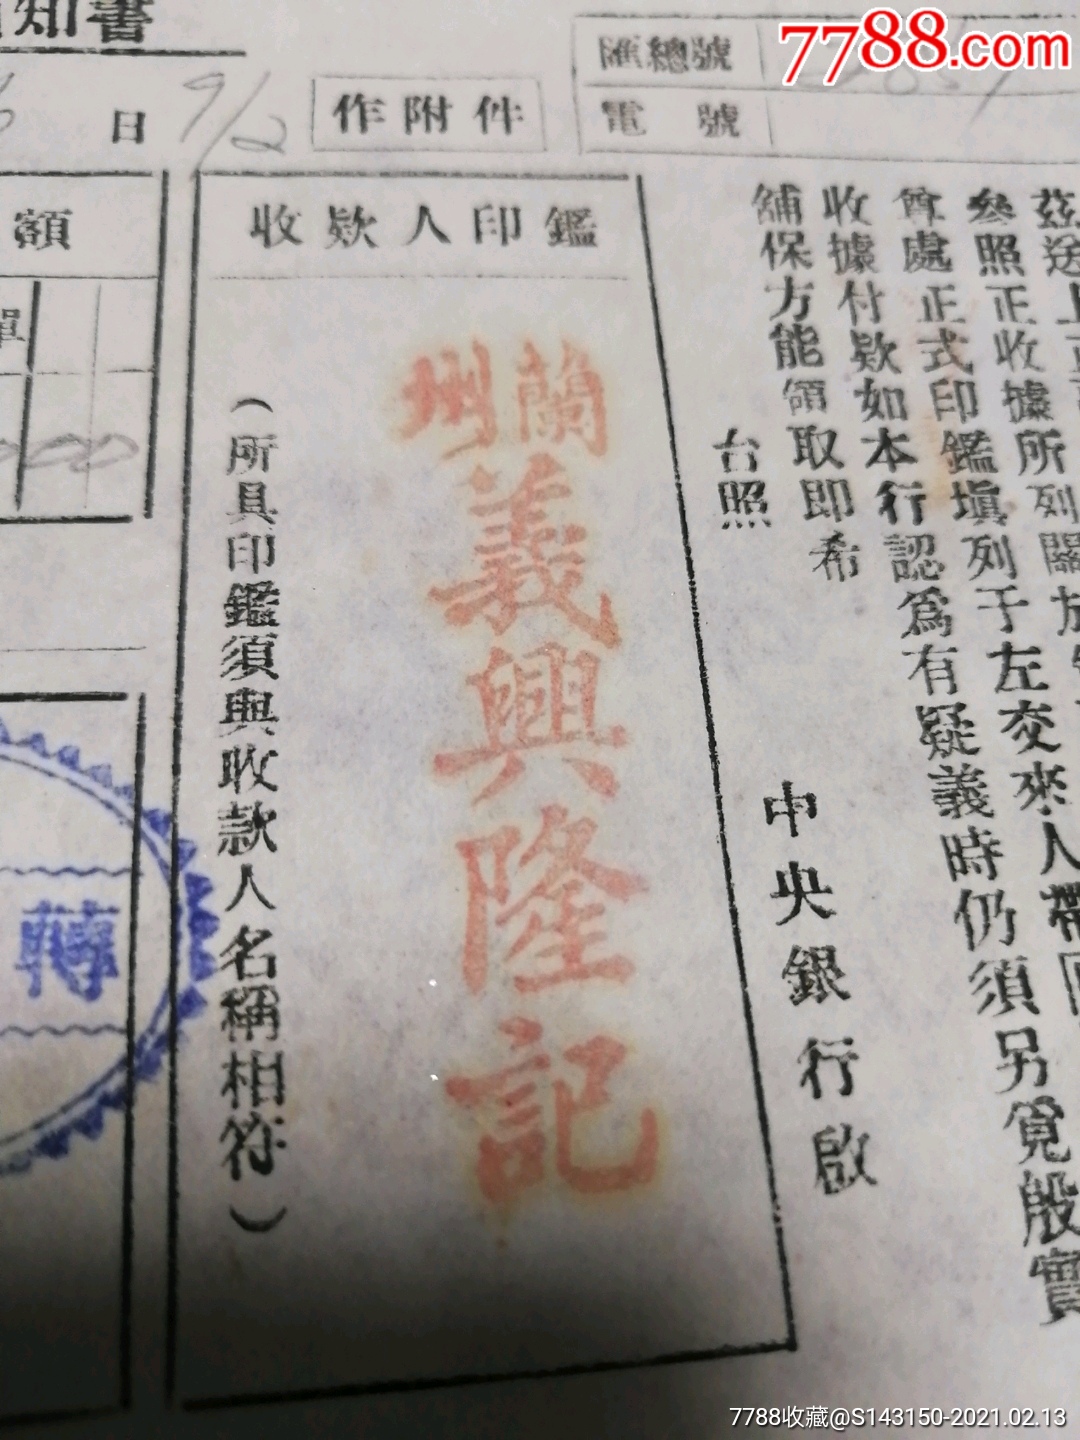 7788.com
知書
匯總號
電號
日 9/2
作附件
額
單
收款人印鑑
蘭州
義興隆記
（所具印鑑須與收款人名稱相符）
茲送上正
參照正收據所列關於
尊處正式印鑑塡列于左交來人帶回
收據付款如本行認爲有疑義時仍須另覓殷實
舖保方能領取即希
台照
中央銀行啟
轉
7788收藏@S143150-2021.02.13